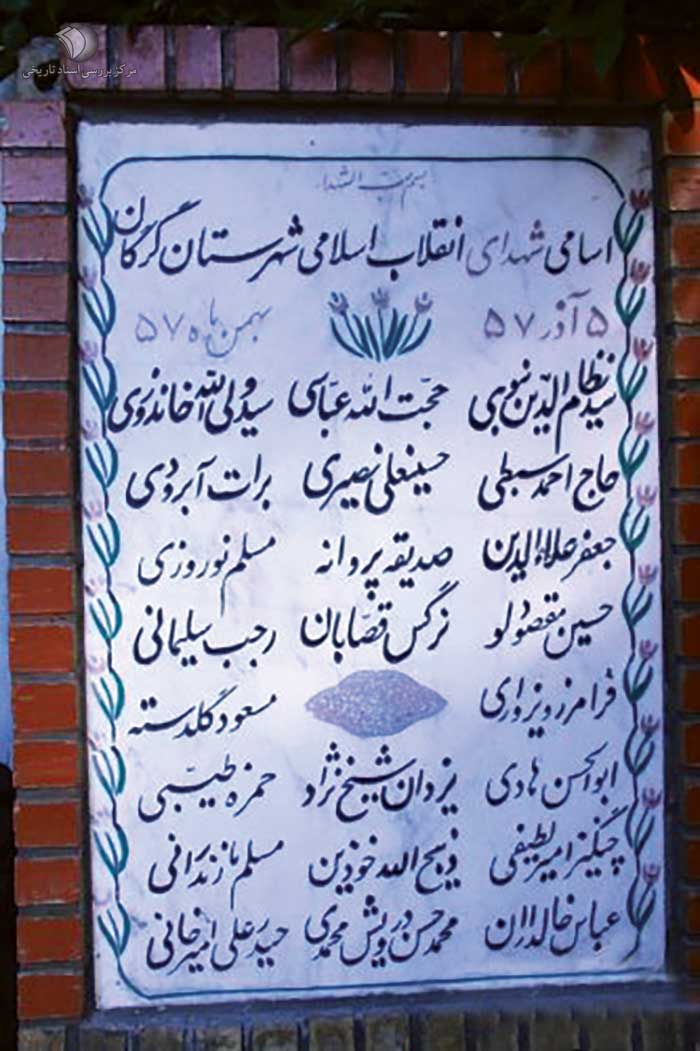 مرکز بررسی اسناد تاریخی
بسم رب الشهدا
اسامی شهدای انقلاب اسلامی شهرستان گرگان
۵ آذر ۵۷ بهمن ماه ۵۷
سید نظام الدین نبوی حجت الله عباسی سید ولی الله خاندوزی
حاج احمد سبطی حسینعلی نصیری برات آبرودی
جعفر علاء الدین صدیقه پروانه مسلم نوروزی
حسین مقصودلو نرگس قصابان رجب سلیمانی
فرامرز ویزواری مسعود گلدسته
ابوالحسن هادی یزدان شیخ نژاد حمزه طیبی
چنگیز امیرلطیفی ذبیح الله خوزین مسلم مازندرانی
عباس خالداران محمد حسن درویش محمدی حیدر علی امیرخانی